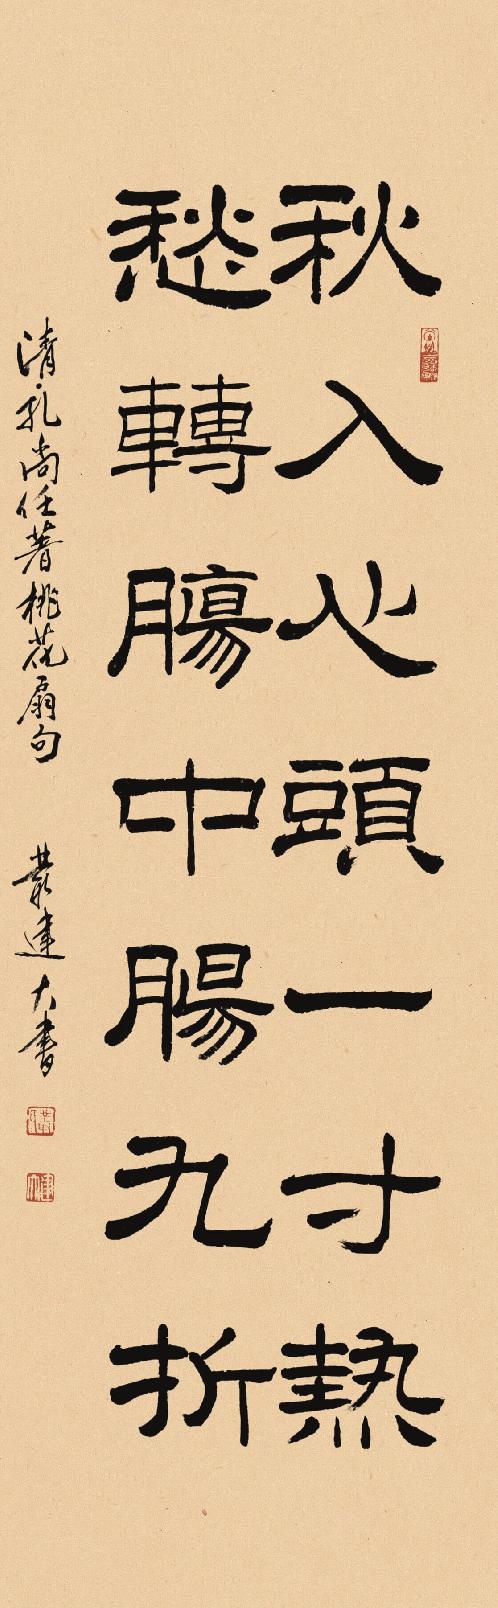 秋入心頭一寸熱
愁轉膓中腸九折
清·孔尚任著桃花扇句 叢建大書